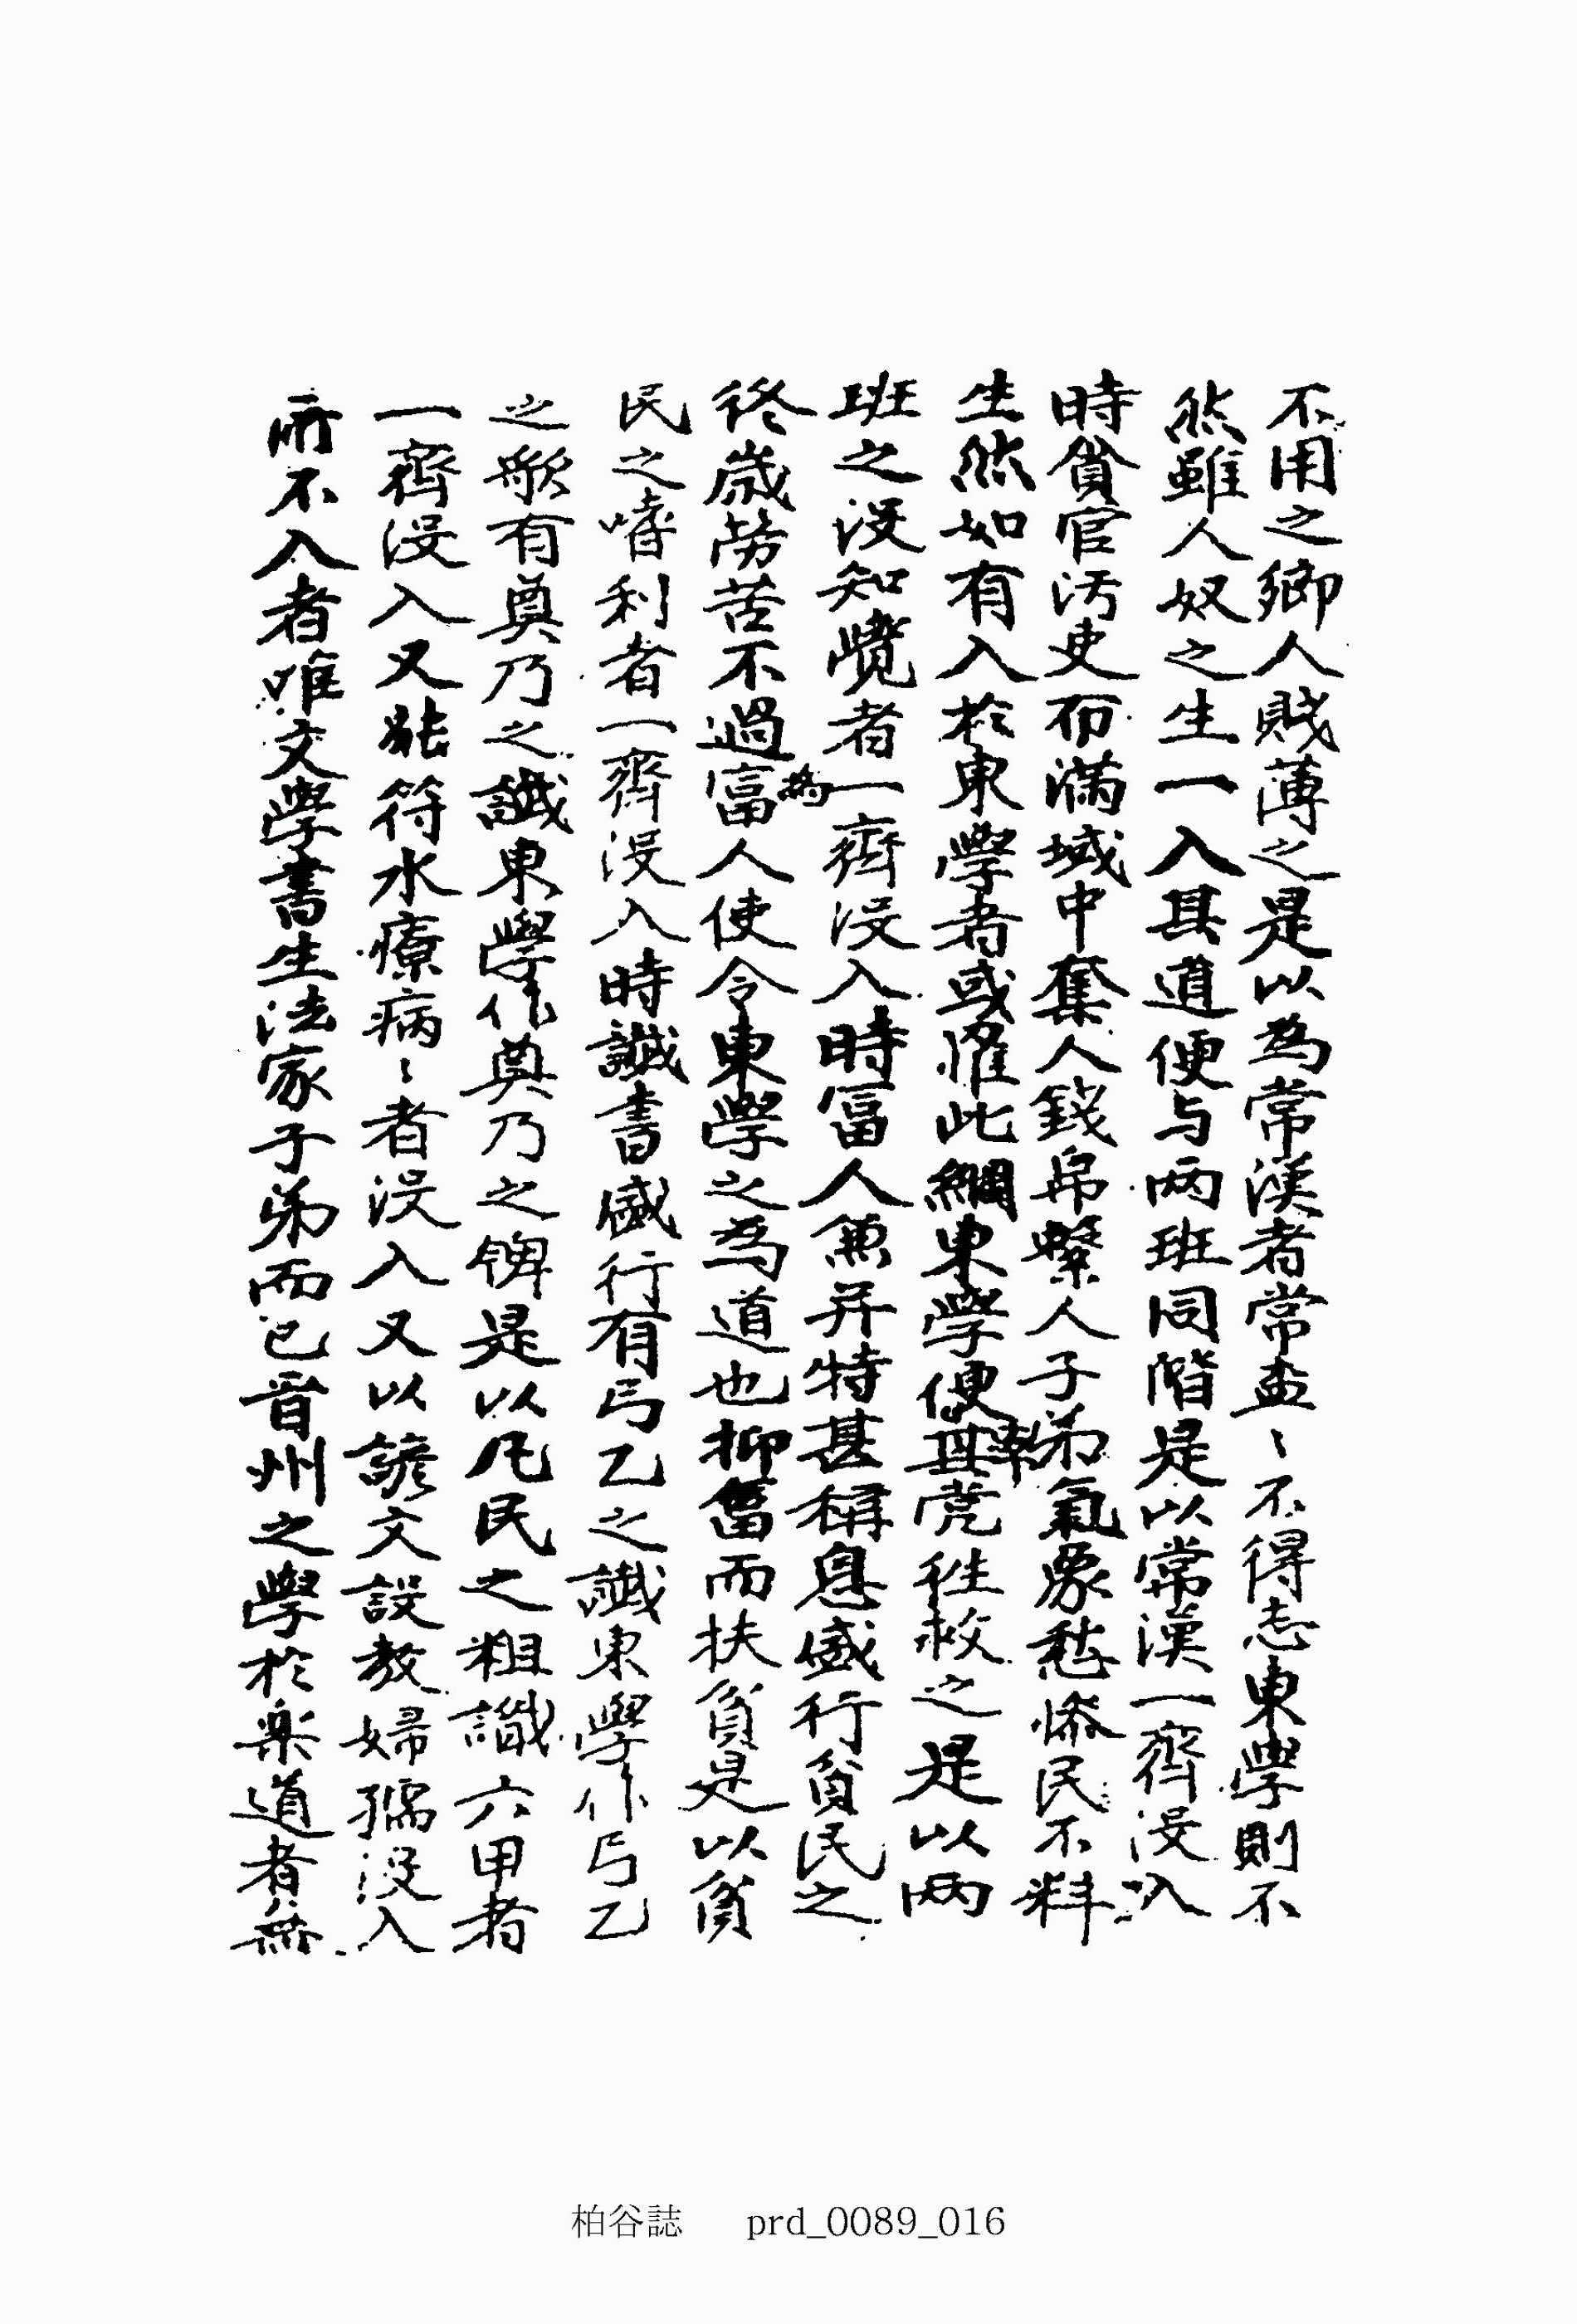 不用之鄉人賤薄之是以為常漢者常盃〻不得志東學則不
然雖人奴之生一入其道便与两班同階是以常漢一齊沒入
時貪官污吏布滿域中奪人錢帛繫人子弟氣象愁慘民不料
生然如有入於東學者或罹此網東學便執毌凭徃救之是以两
班之沒知覺者一齊沒入時富人兼并特甚稱息盛行貧民之
終歲勞苦不過為富人使令東學之為道也抑富而扶貧是以貧
民之嗜利者一齊沒入時讖書盛行有弓乙之讖東學作弓乙
之歌有奠乃之讖東學作奠乃之牌是以凡民之粗識六甲者
一齊沒入又能符水療病〻者沒入又以諺文設教婦孺沒入
所不入者唯文學書生法家子弟而已晋州之學於樂道者無
柏谷誌 prd_0089_016